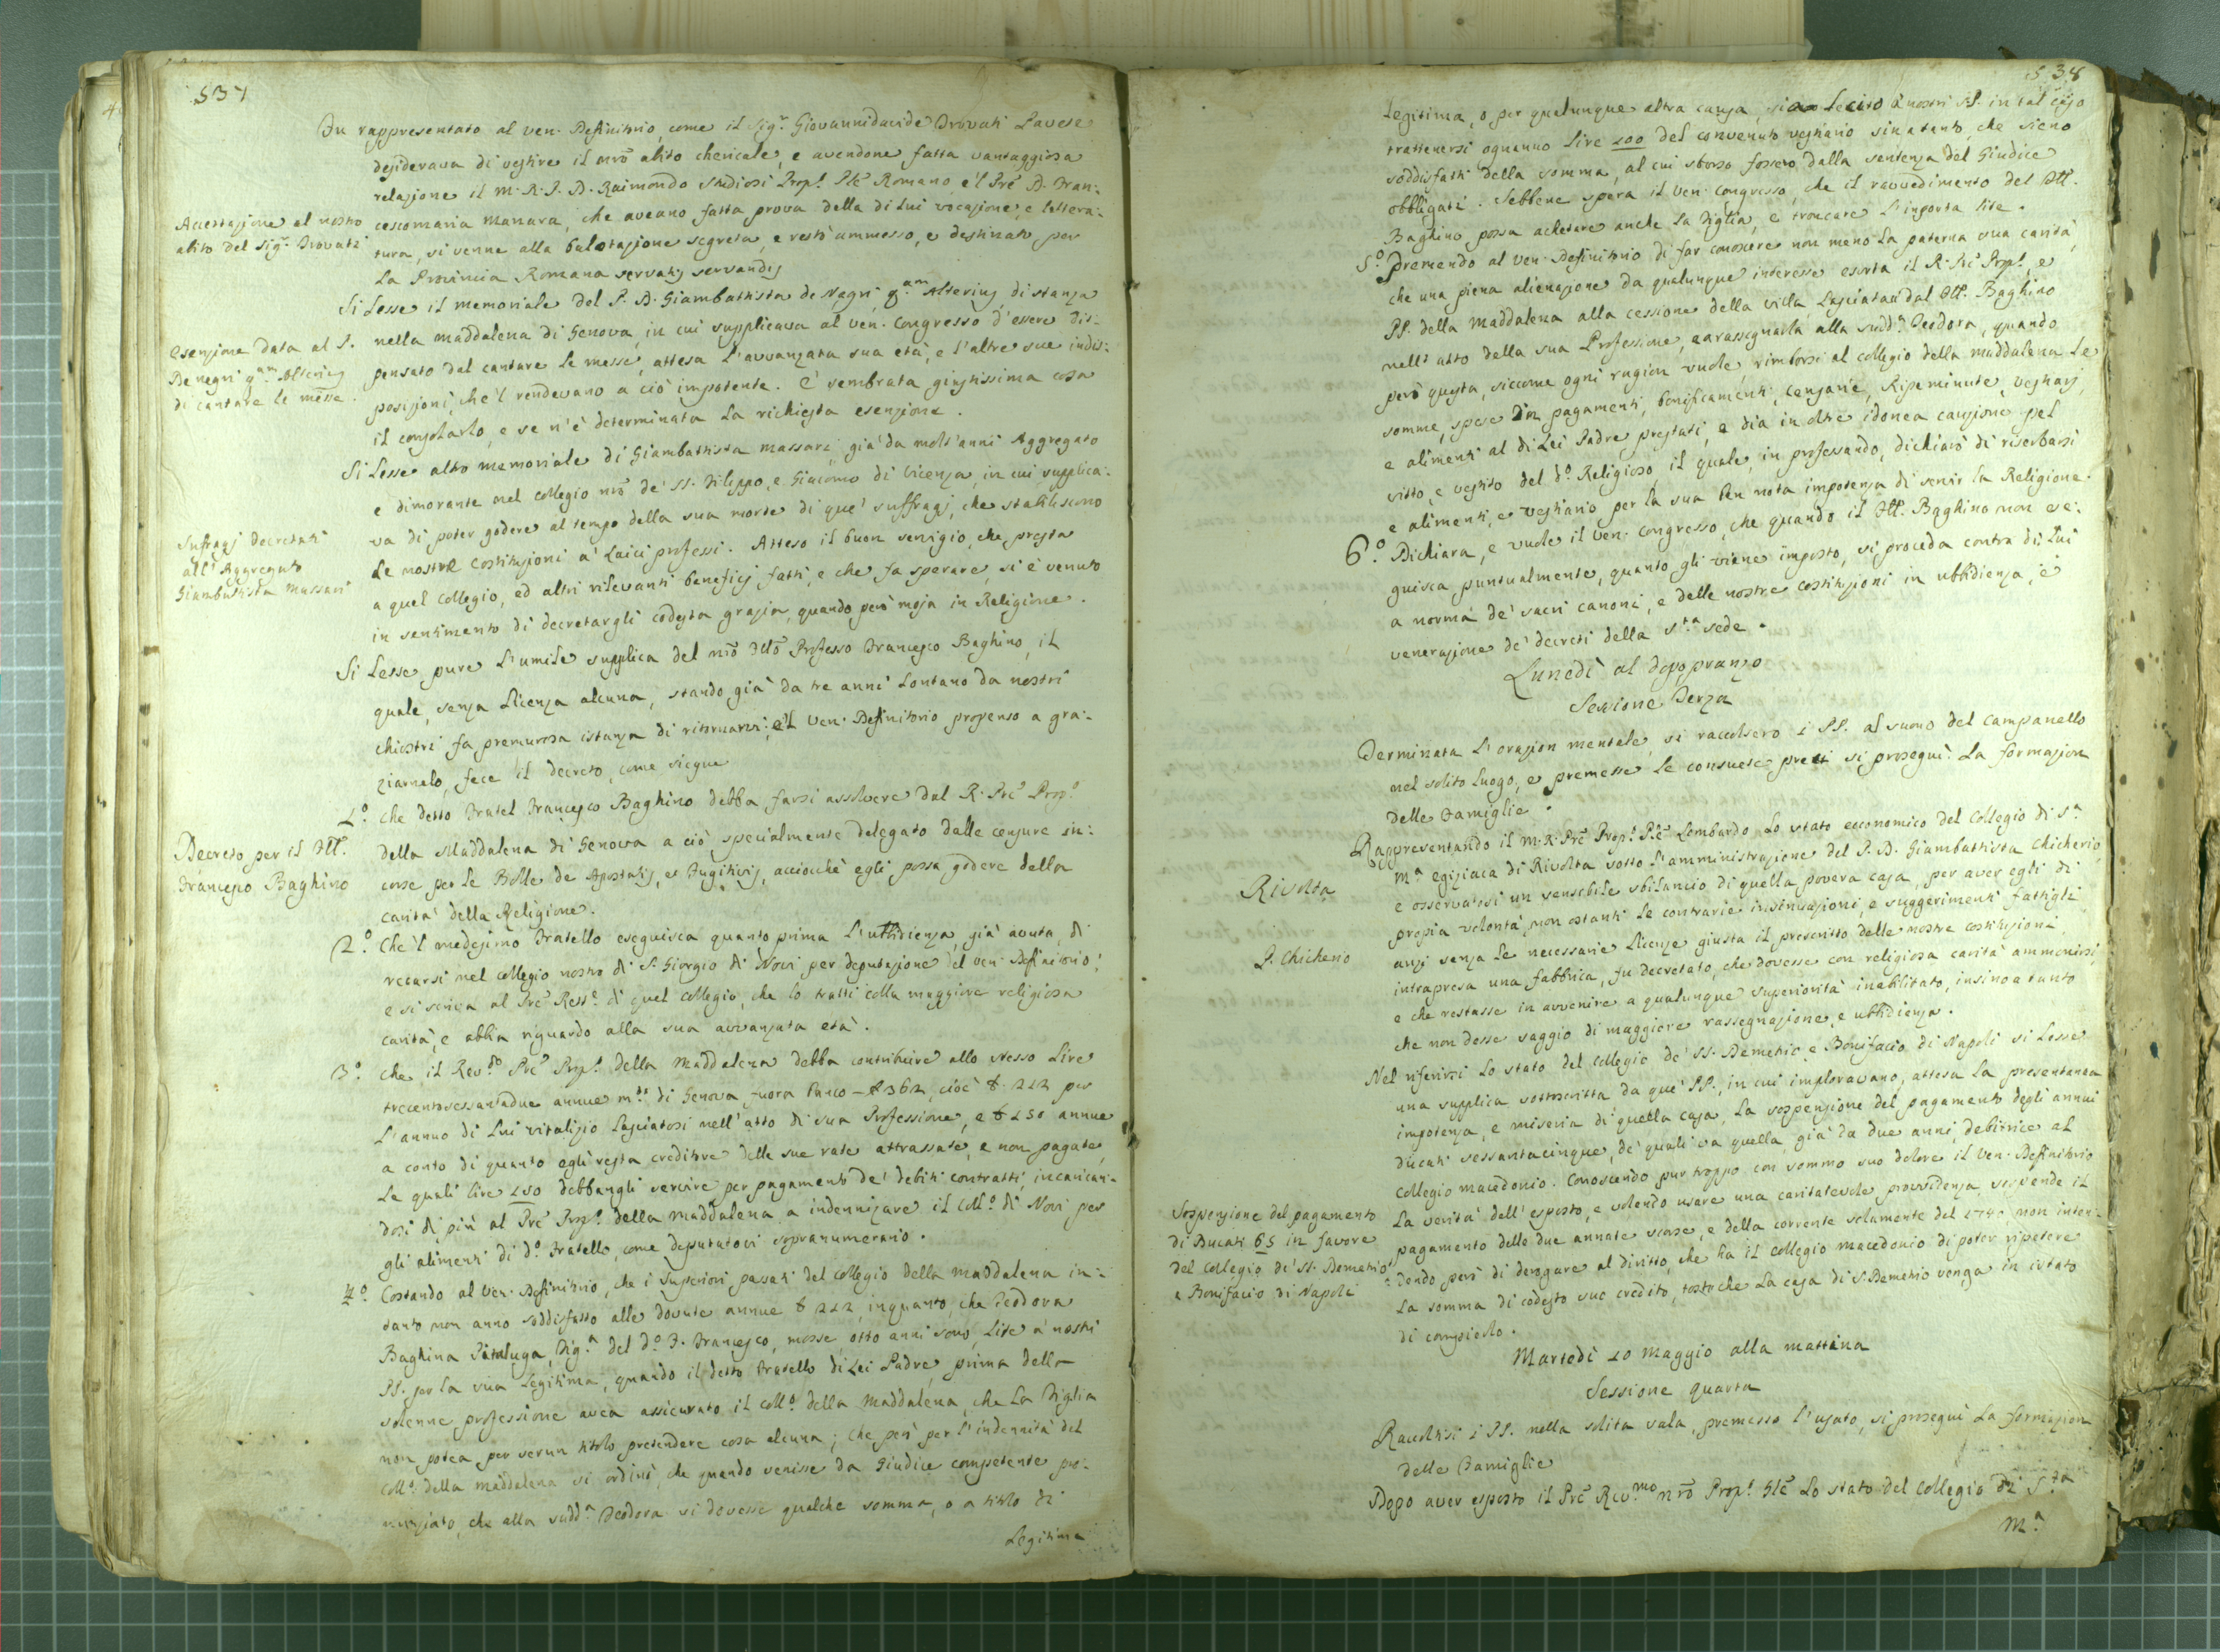 537
Fu rappresentato al ven. Definitorio, come il Sig.r Giovannidavide Trovati Pavese
desiderava di vestire il nrõ abito chericale, e avendone fatta vantaggiosa
relazione il M. R. P. D. Raimondo Studiosi Prop.to Plẽ Romano, e'l Prẽ D. Fran-
cescomaria Manara, che aveano fatta prova della di lui vocazione, e lettera-
tura, si venne alla ballotazione segreta, e restò ammesso, e destinato per
la Provincia Romana servatis servandis
Accettazione al nostro
abito del Sig.r Trovati
Si lesse il memoriale del P. D. Giambattista de Negri q.am Alterius, di stanza
nella Maddalena di Genova, in cui supplicava al ven. Congresso d'essere dis-
pensato dal cantare le messe, attesa l'avvanzata sua età, e l'altre sue indis-
posizioni, che'l rendevano a ciò impotente. È sembrata giustissima cosa
il consolarlo, e se n'è determinata la richiesta esenzione.
Esenzione data al P.
De negri q.am Alterius
di cantare le messe.
Si lesse altro memoriale di Giambattista Massari, già da molt'anni Aggregato
e dimorante nel collegio nrõ de' SS. Filippo, e Giacomo di Vicenza, in cui supplica-
va di poter godere al tempo della sua morte di que' suffragj, che stabiliscono
le nostre Costituzioni a' Laici professi. Atteso il buon servigio, che presta
a quel Collegio, ed altri rilevanti beneficj fatti, e che fa sperare, si è venuto
in sentimento di decretargli codesta grazia, quando però moja in Religione.
Suffragj decretati
all'Aggregato
Giambattista Massari
Si lesse pure l'umile supplica del nrõ Fllõ Professo Francesco Baghino, il
quale, senza licenza alcuna, stando già da tre anni lontano da nostri
chiostri fa premurosa istanza di ritornarvi; e'l ven. Definitorio propenso a gra-
ziarnelo, fece il decreto, come siegue
1.o che detto Fratel Francesco Baghino debba farsi assolvere dal R. Prẽ Prop.o
della Maddalena di Genova a ciò specialmente delegato dalle censure in-
corse per le Bolle de Apostatis, et Fugitivis, acciocchè egli possa godere della
carità della Religione.
Decreto per il Fll.
Francesco Baghino
2.o Che'l medesimo Fratello eseguisca quanto prima l'ubbidienza, già avuta, di
recarsi nel collegio nostro di S. Giorgio di Novi per deputazione del ven. Definitorio:
e si scriva al Prẽ Rett.e di quel collegio, che lo tratti colla maggiore religiosa
carità, e abbia riguardo alla sua avvanzata età.
3.o che il Rev.do Prẽ Prop.to della Maddalena debba contribuire allo stesso Lire
trecentosessantadue annue m.ta di Genova, fuora Banco — £ 362, cioè £ 212 per
l'annuo di lui vitalizio lasciatosi nell'atto di sua Professione, e £ 150 annue
a conto di quanto egli resta creditore delle sue rate attrassate, e non pagate,
le quali lire 150 debbangli servire per pagamento de' debiti contratti, incarican-
dosi di più al Prẽ Prop.to della Maddalena a indennizare il Coll.o di Novi per
gli alimenti di d.o Fratello, come deputatovi sopranumerario.
4.o Costando al ven. Definitorio, che i Superiori passati del collegio della Maddalena in-
tanto non anno soddisfatto alle dovute annue £ 212, inquanto, che Teodora
Baghina Pitaluga, Fig.a del d.o F. Francesco, mosse, otto anni sono, Lite a' nostri
PP. per la sua legitima, quando il detto Fratello di Lei Padre, prima della
solenne professione avea assicurato il coll.o della Maddalena, che la Figlia
non potea per verun titolo pretendere cosa alcuna; che però per l'indennità del
coll.o della Maddalena si ordinò, che quando venisse da Giudice competente pro-
nunziato, che alla sudd.a Teodora si dovesse qualche somma, o a titolo di
Legitima
538
Legitima, o per qualunque altra causa, sia lecito a' nostri PP. in tal caso
trattenersi ognanno lire 100 del convenuto vestiario sinatanto, che sieno
soddisfatti della somma, al cui sborso fossero dalla sentenza del Giudice
obbligati. Sebbene spera il ven. Congresso, che il ravvedimento del Fll.
Baghino possa achetare anche la Figlia, e troncare l'insorta lite.
5.o Premendo al ven. Definitorio di far conoscere non meno la paterna sua carità,
che una piena alienazione da qualunque interesse esorta il R. Prẽ Prop.to, e
PP. della Maddalena alla cessione della villa lasciata dal Fll. Baghino
nell'atto della sua Professione, e a rassegnarla alla sudd.a Teodora, quando
però questa, siccome ogni ragion vuole, rimborsi al collegio della Maddalena le
somme, spese in pagamenti, bonificamenti, censarie, spese minute, vestiarj,
e alimenti al di Lei Padre prestati, e dia in oltre idonea cauzione pel
vitto, e vestito del d.o Religioso, il quale, in professando, dichiarò di riserbarsi
e alimenti, e vestiario per la sua ben nota impotenza di servir la Religione.
6.o Dichiara, e vuole il ven. Congresso, che quando il Fll. Baghino non ese-
guisca puntualmente, quanto gli viene imposto, si proceda contra di Lui
a norma de' sacri canoni, e delle nostre costituzioni in ubbidienza, e
venerazione de' decreti della S.ta Sede.
Lunedì al dopopranzo
Sessione Terza
Terminata l'orazion mentale, si raccolsero i PP. al suono del campanello
nel solito luogo, e premesse le consuete preci si proseguì la formazion
delle Famiglie.
Rappresentando il M. R. Prẽ Prop.to Plẽ Lombardo lo stato economico del Collegio di S.a
M.a egiziaca di Rivolta sotto l'amministrazione del P. D. Giambattista Chicherio,
e osservatosi un sensibile sbilancio di quella povera casa, per aver egli di
propia volontà, non ostanti le contrarie insinuazioni, e suggerimenti fattigli,
anzi senza le necessarie licenze giusta il prescritto delle nostre costituzioni,
intrapresa una fabbrica, fu decretato, che dovesse con religiosa carità ammonirsi,
e che restasse in avvenire a qualunque superiorità inabilitato, insino a tanto
che non desse saggio di maggiore rassegnazione, e ubbidienza.
Rivolta
P. Chicherio
Nel riferirsi lo stato del collegio de' SS. Demetrio e Bonifacio di Napoli si lesse
una supplica sottoscritta da que' PP., in cui imploravano, attesa la presentanea
impotenza, e miseria di quella casa, la sospensione del pagamento degli annui
ducati sessantacinque, de' quali va quella, già da due anni, debitrice al
collegio macedonio. Conoscendo pur troppo con sommo suo dolore il ven. Definitorio
la verità dell'esposto, e volendo usare una caritatevole provvidenza, sospende il
pagamento delle due annate scorse, e della corrente solamente del 1740 non inten-
dendo però di derogare al diritto, che ha il collegio macedonio di poter ripetere
la somma di codesto suo credito, tostochè la casa di S. Demetrio venga in istato
di compierlo.
Sospensione del pagamento
di Ducati 65 in favore
del collegio de' SS. Demetrio
e Bonifacio di Napoli
Martedì 10 Maggio alla mattina
Sessione quarta
Raccoltisi i PP. nella solita sala, premesso l'usato, si proseguì la formazion
delle Famiglie
Dopo aver esposto il Prẽ Rev.mo nrõ Prop.to Glẽ lo stato del collegio di S.ta
M.a